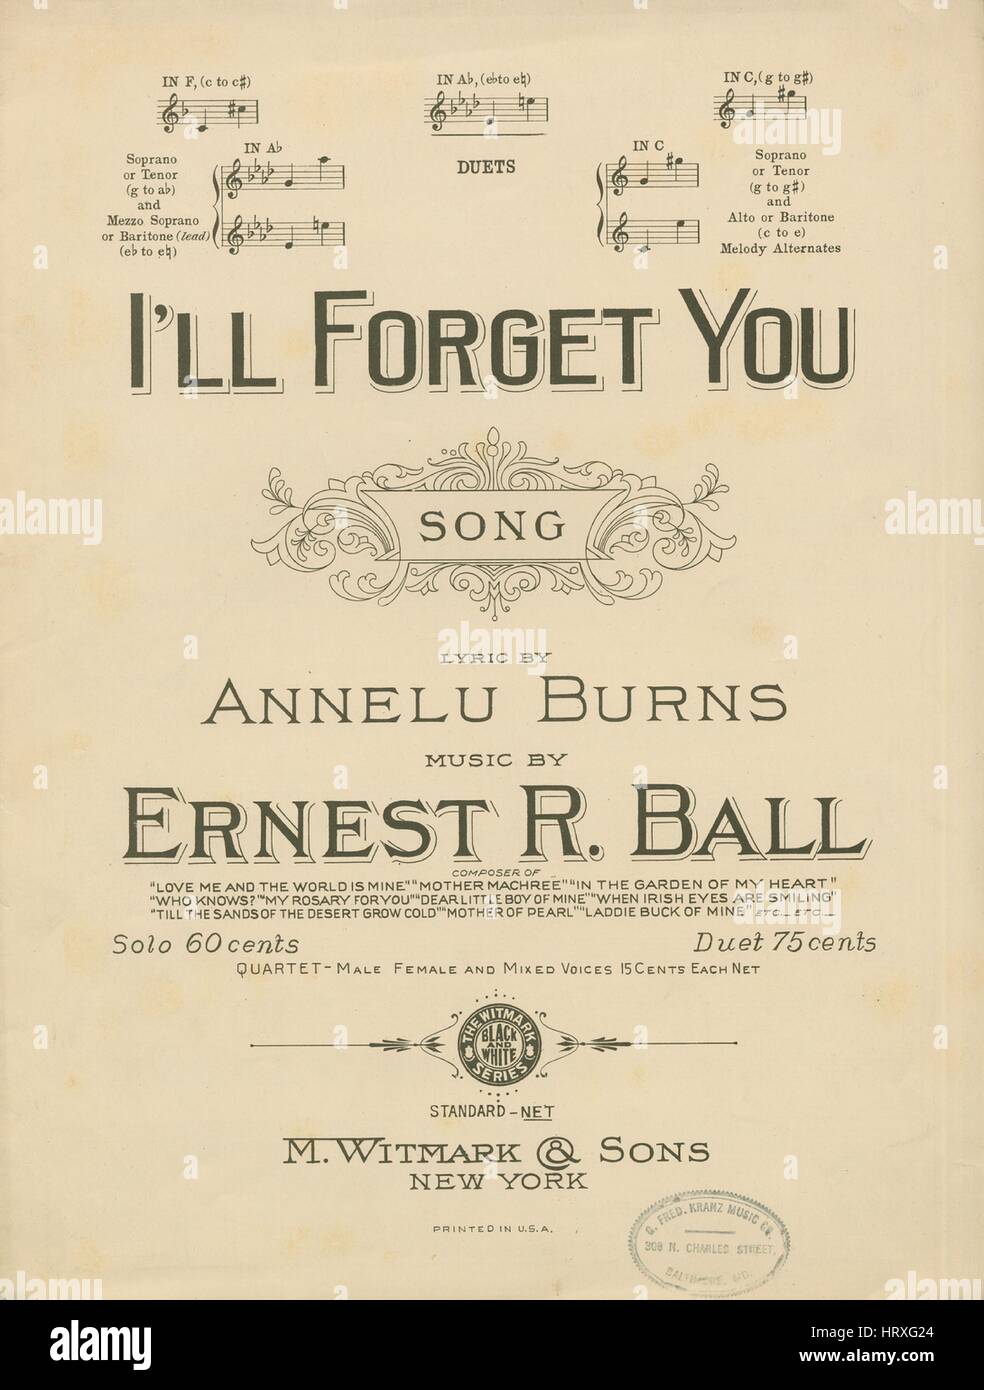 IN F, (c to c♯)
IN A♭, (e♭ to e♮)
IN C, (g to g♯)
Soprano
or Tenor
(g to a♭)
and
Mezzo Soprano
or Baritone (lead)
(e♭ to e♮)
IN A♭
DUETS
IN C
Soprano
or Tenor
(g to g♯)
and
Alto or Baritone
(c to e)
Melody Alternates
I'LL FORGET YOU
SONG
LYRIC BY
ANNELU BURNS
MUSIC BY
ERNEST R. BALL
COMPOSER OF
"LOVE ME AND THE WORLD IS MINE" "MOTHER MACHREE" "IN THE GARDEN OF MY HEART"
"WHO KNOWS?" "MY ROSARY FOR YOU" "DEAR LITTLE BOY OF MINE" "WHEN IRISH EYES ARE SMILING"
"TILL THE SANDS OF THE DESERT GROW COLD" "MOTHER OF PEARL" "LADDIE BUCK OF MINE" ETC. ETC.
Solo 60 cents
Duet 75 cents
QUARTET - MALE FEMALE AND MIXED VOICES 15 CENTS EACH NET
THE WITMARK
BLACK
AND
WHITE
SERIES
STANDARD - NET
M. WITMARK & SONS
NEW YORK
PRINTED IN U.S.A.
G. FRED. KRANZ MUSIC CO.
308 N. CHARLES STREET,
BALTIMORE, MD.
a
alamy
alamy
Image ID: HRXG24
www.alamy.com